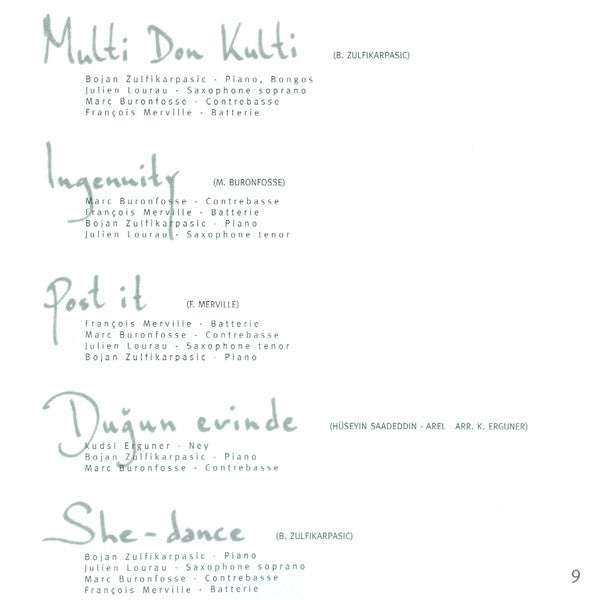 Multi Don Kulti (B. ZULFIKARPASIC)
Bojan Zulfikarpasic - Piano, Bongos
Julien Lourau - Saxophone soprano
Marc Buronfosse - Contrebasse
François Merville - Batterie
Ingenuity (M. BURONFOSSE)
Marc Buronfosse - Contrebasse
François Merville - Batterie
Bojan Zulfikarpasic - Piano
Julien Lourau - Saxophone tenor
Post it (F. MERVILLE)
François Merville - Batterie
Marc Buronfosse - Contrebasse
Julien Lourau - Saxophone tenor
Bojan Zulfikarpasic - Piano
Duğun evinde (HÜSEYIN SAADEDDIN - AREL ARR. K. ERGUNER)
Kudsi Erguner - Ney
Bojan Zulfikarpasic - Piano
Marc Buronfosse - Contrebasse
She-dance (B. ZULFIKARPASIC)
Bojan Zulfikarpasic - Piano
Julien Lourau - Saxophone soprano
Marc Buronfosse - Contrebasse
François Merville - Batterie
9